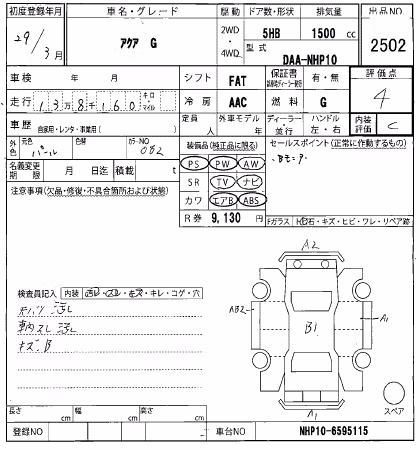 初度登録年月 車名・グレード 駆動 ドア数・形状 排気量 出品NO
29/3月 アクア G 2WD・4WD 5HB 1500 cc 2502
型式 DAA-NHP10
車検 年 月 シフト FAT 保証書 有・無 評価点
走行 13万8千160 キロ・マイル 冷房 AAC 燃料 G 4
車歴 自家用・レンタ・事業用( ) 定員 人 外車モデル 年 ディーラー・並行 ハンドル 左・右 内装評価 C
外色 元色 パール 色替 カラーNO 082
装備品(純正品に限る) セールスポイント(正常に作動するもの)
名義変更期限 月 日迄 積載 t PS PW AW
注意事項(欠品・修復・不具合箇所および状態) SR TV ナビ
カワ エアB ABS
R券 9,130 円 Fガラス
A2
検査員記入 内装
AB2 B1 A1
キズ、B
A1
スペア
長さ cm 幅 cm 高さ cm
登録NO 車台NO NHP10-6595115